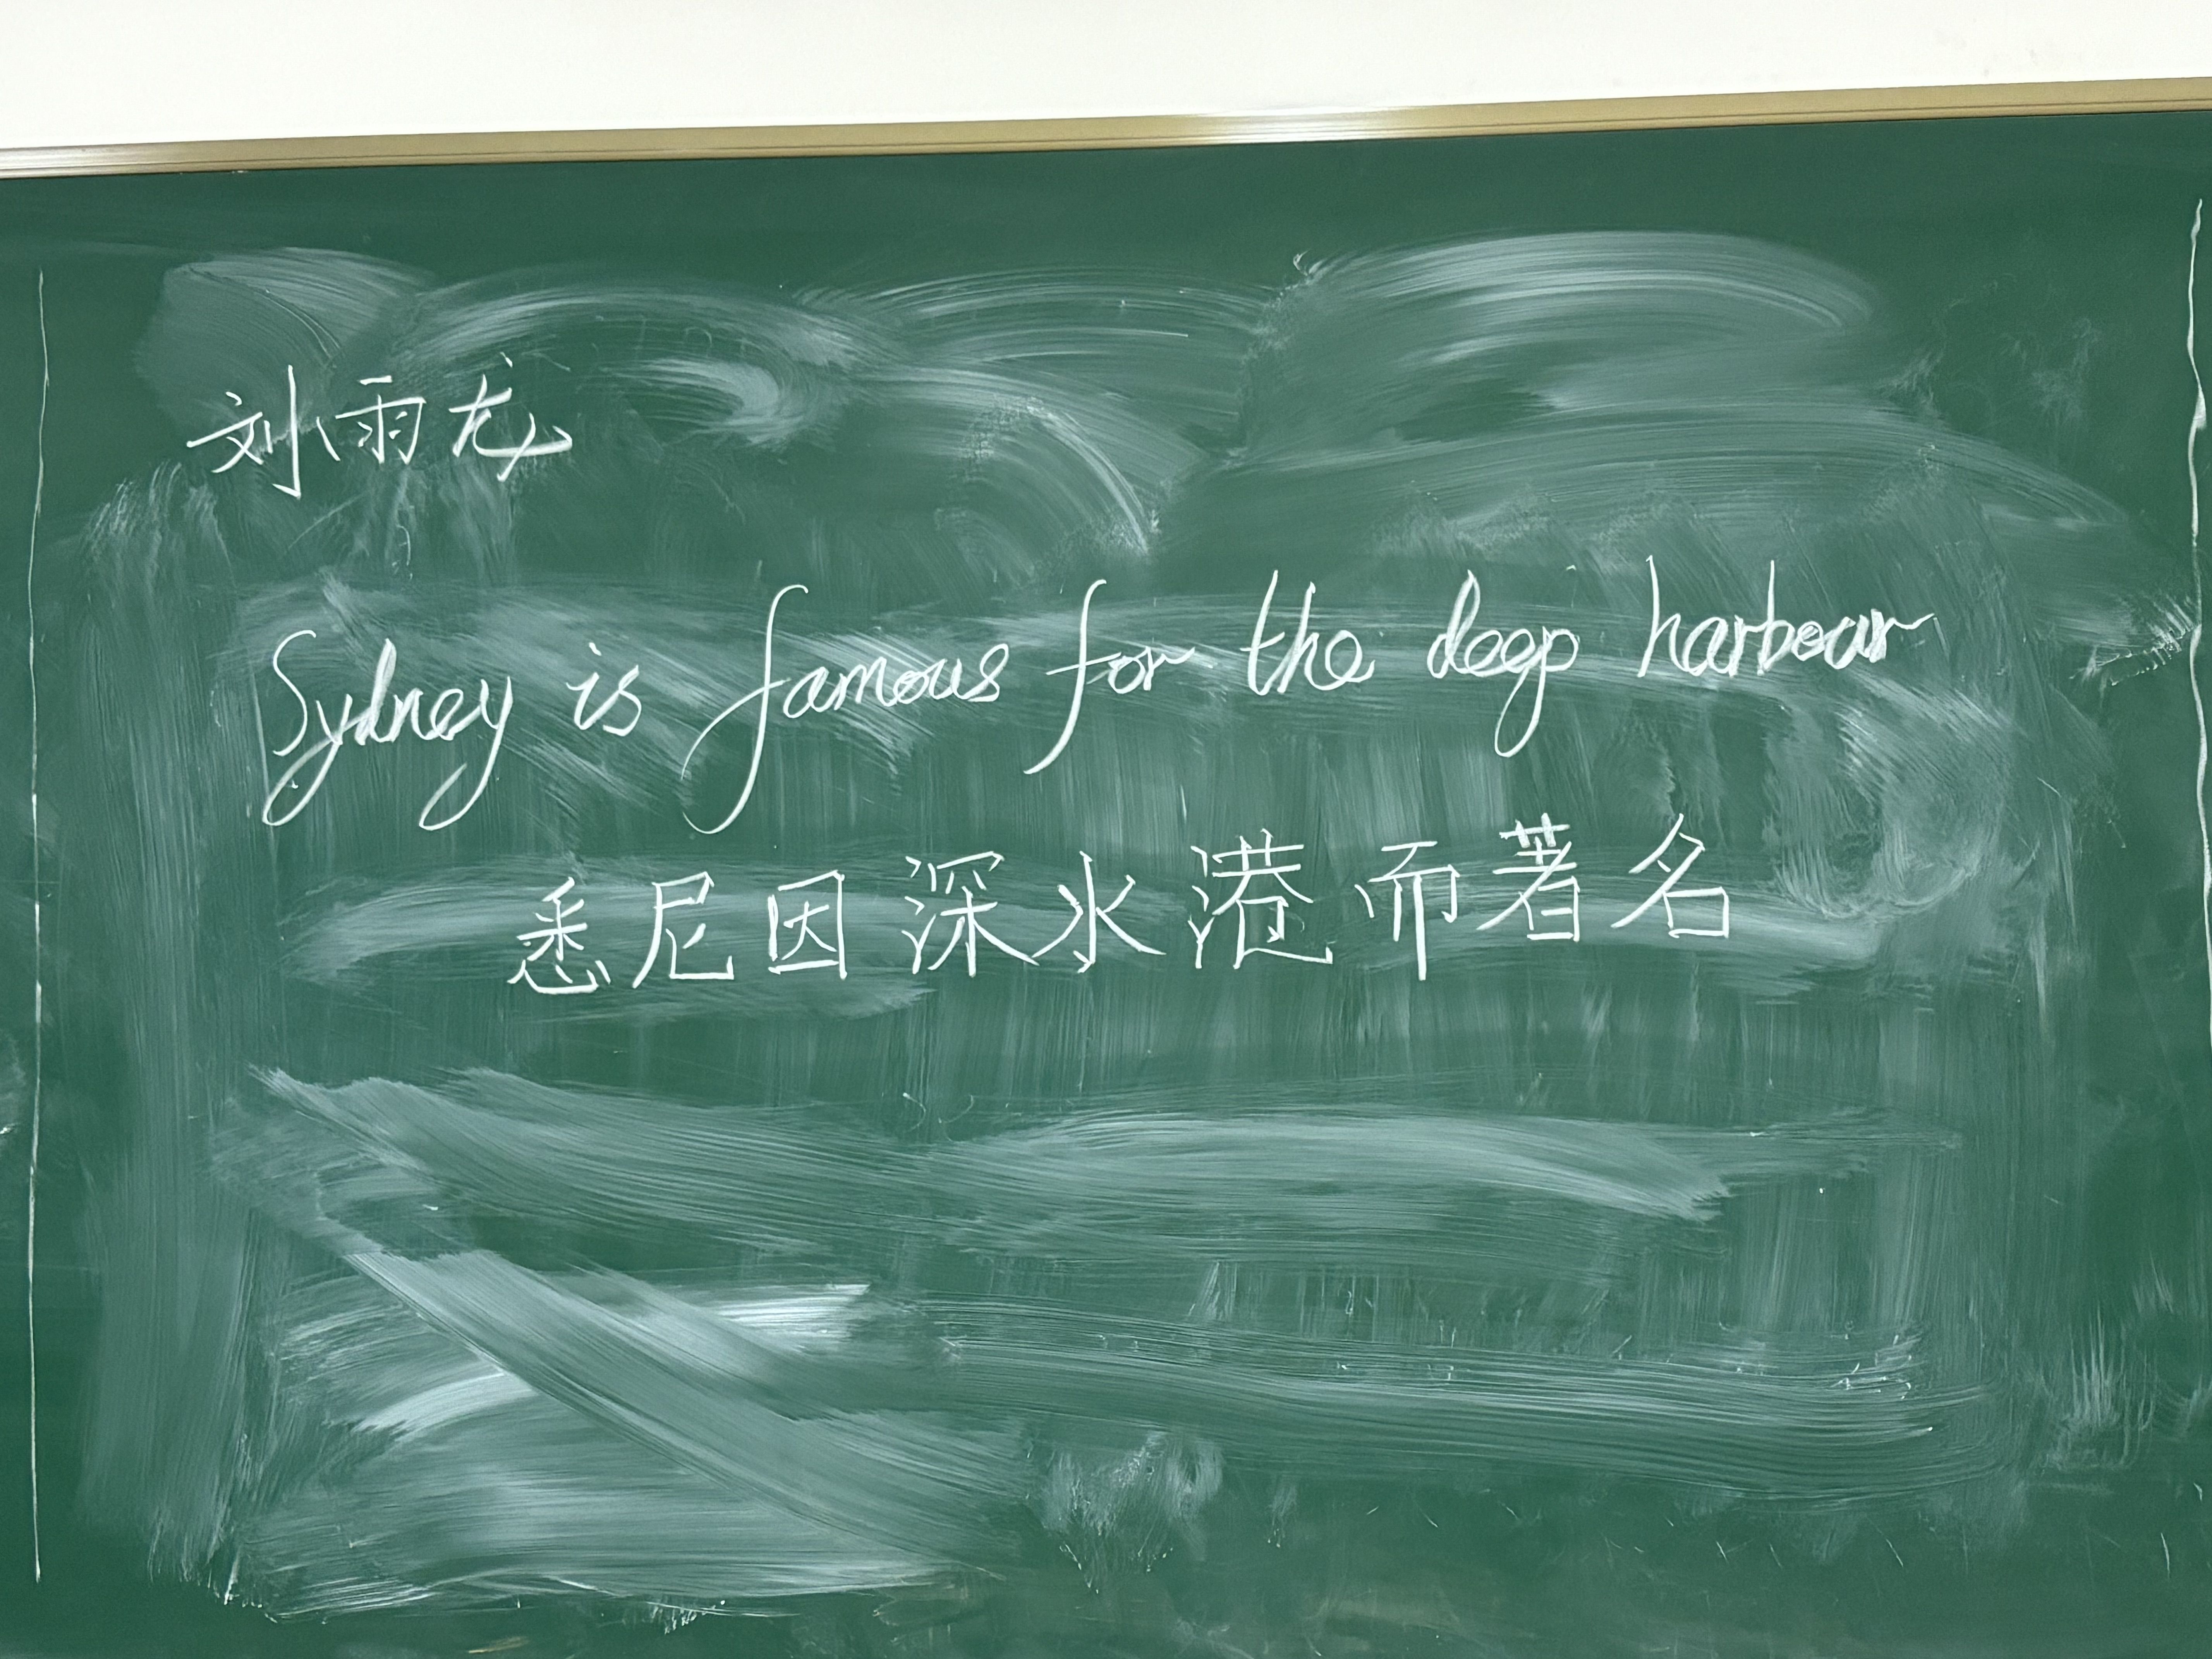 刘雨龙
Sydney is famous for the deep harbour
悉尼因深水港而著名